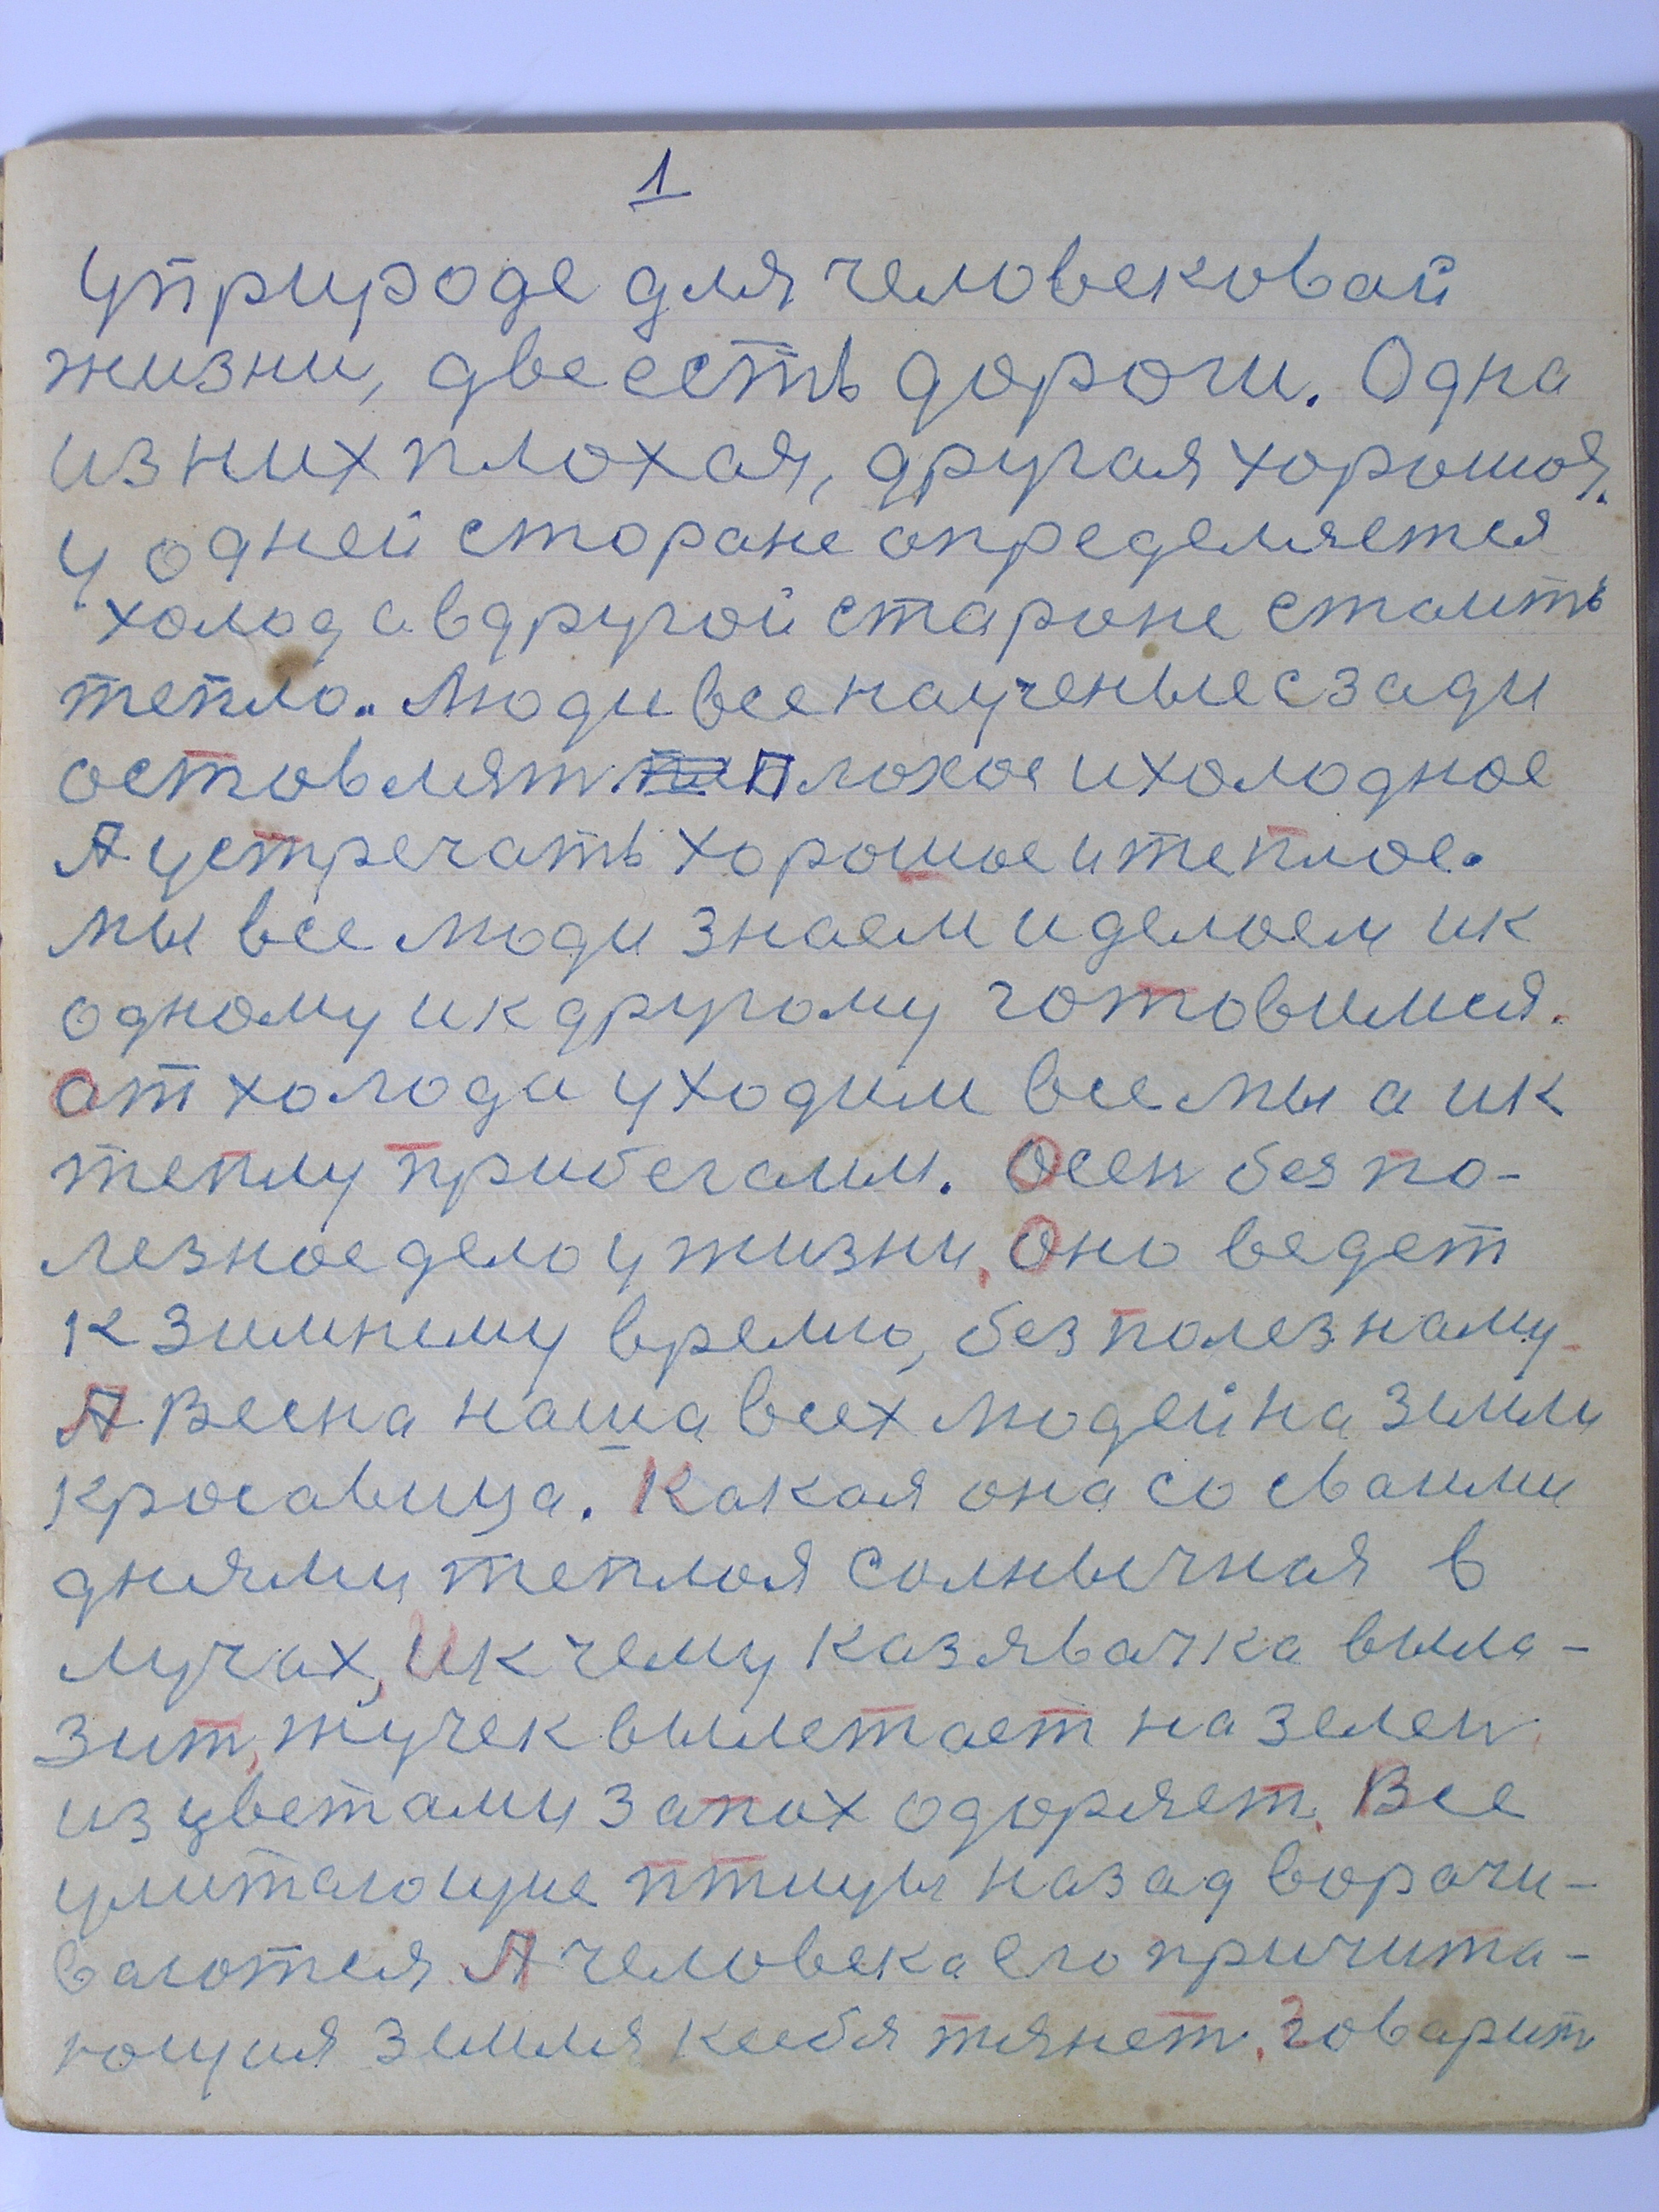 1
Уприроде для человековай
жизни, две есть дороги. Одна
из них плохая, другая хорошоя.
У одней старане определяется
холод а вдругой староне стаить
тепло.. Люди все наученые сзади
оставлят плохое и холодное
А устречать хорошое и теплое.
мы все люди знаем и делаем и к
одному и к другому готовимся.
От холода уходим все мы а и к
теплу прибегаим. Осен без по-
лезное дело у жизни. Оно ведет
к зимнему времю, без полезнаму
А Весна наша всех людей на земли
красавица. Какая она со сваими
днями теплоя солнычная в
лучах, И к чему казявачка выла-
зит, жучек вылетает на зелен
из цветами запах одоряет. Все
улитающие птицы назад ворачи-
ваются. А человека его причита-
ющия земля ксебя тянет. Говарит